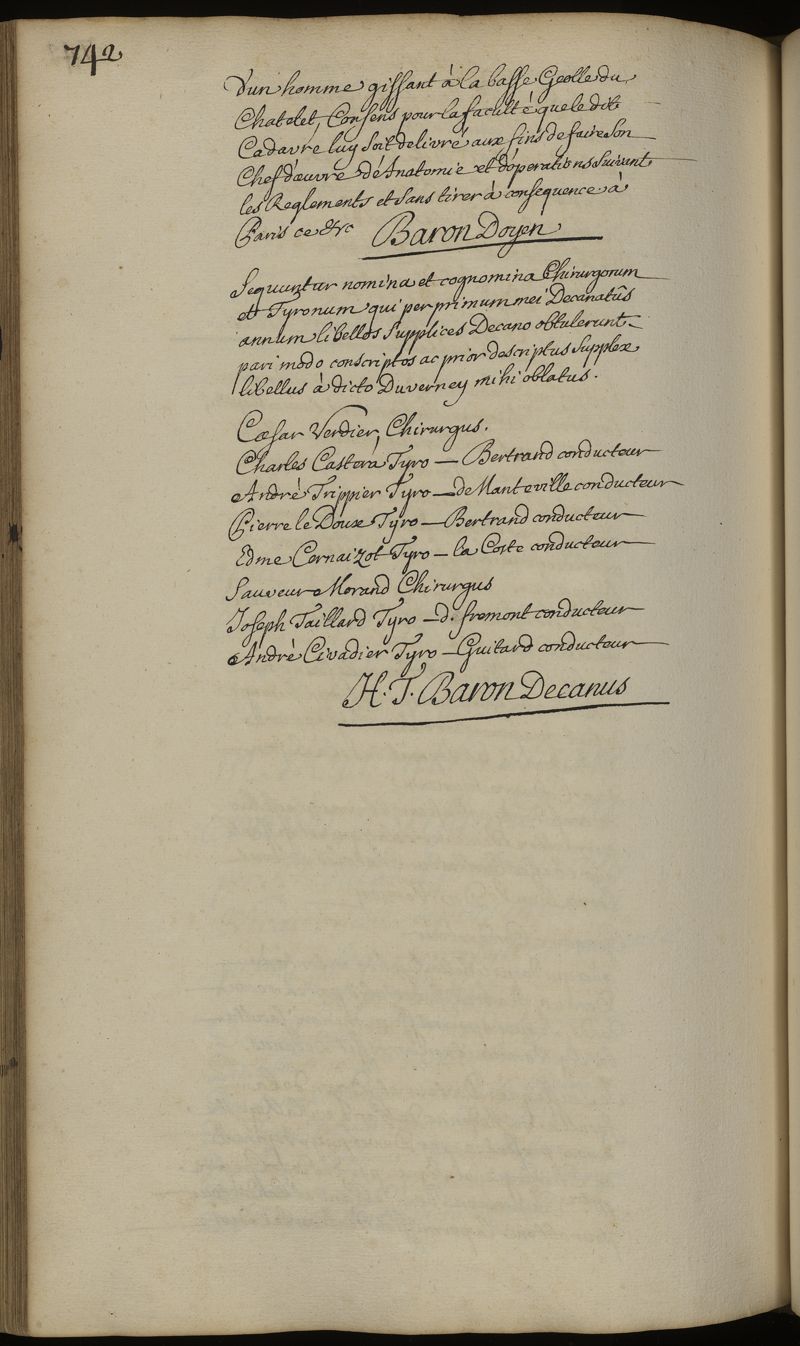 742
D'un homme gissant à la basse Geolle du
Chatelet, Consens pour la faculté que le dit
Cadavre luy soit delivré aux fins de faire son
Chef d'œuvre d'Anatomie et d'operations suivant
les Reglements et sans tirer à consequence à
Paris ce &c Baron Doyen
Sequuntur nomina et cognomina Chirurgorum
et Tyronum qui per primum mei Decanatûs
annum libellos supplices Decano obtulerunt
pari modo conscriptos ac prior descriptus supplex
libellus à dicto Duverney mihi oblatus.
Cæsar Verdier, Chirurgus.
Charles Castera Tyro — Bertrand conducteur
André Trippier Tyro — de Manteville conducteur
Pierre le Doux Tyro — Bertrand conducteur
Edme Cornaizot Tyro — la Coste conducteur
Sauveur Morand Chirurgus
Joseph Taillard Tyro — d. fremont conducteur
André Civadier Tyro — Guitard conducteur
H. T. Baron Decanus